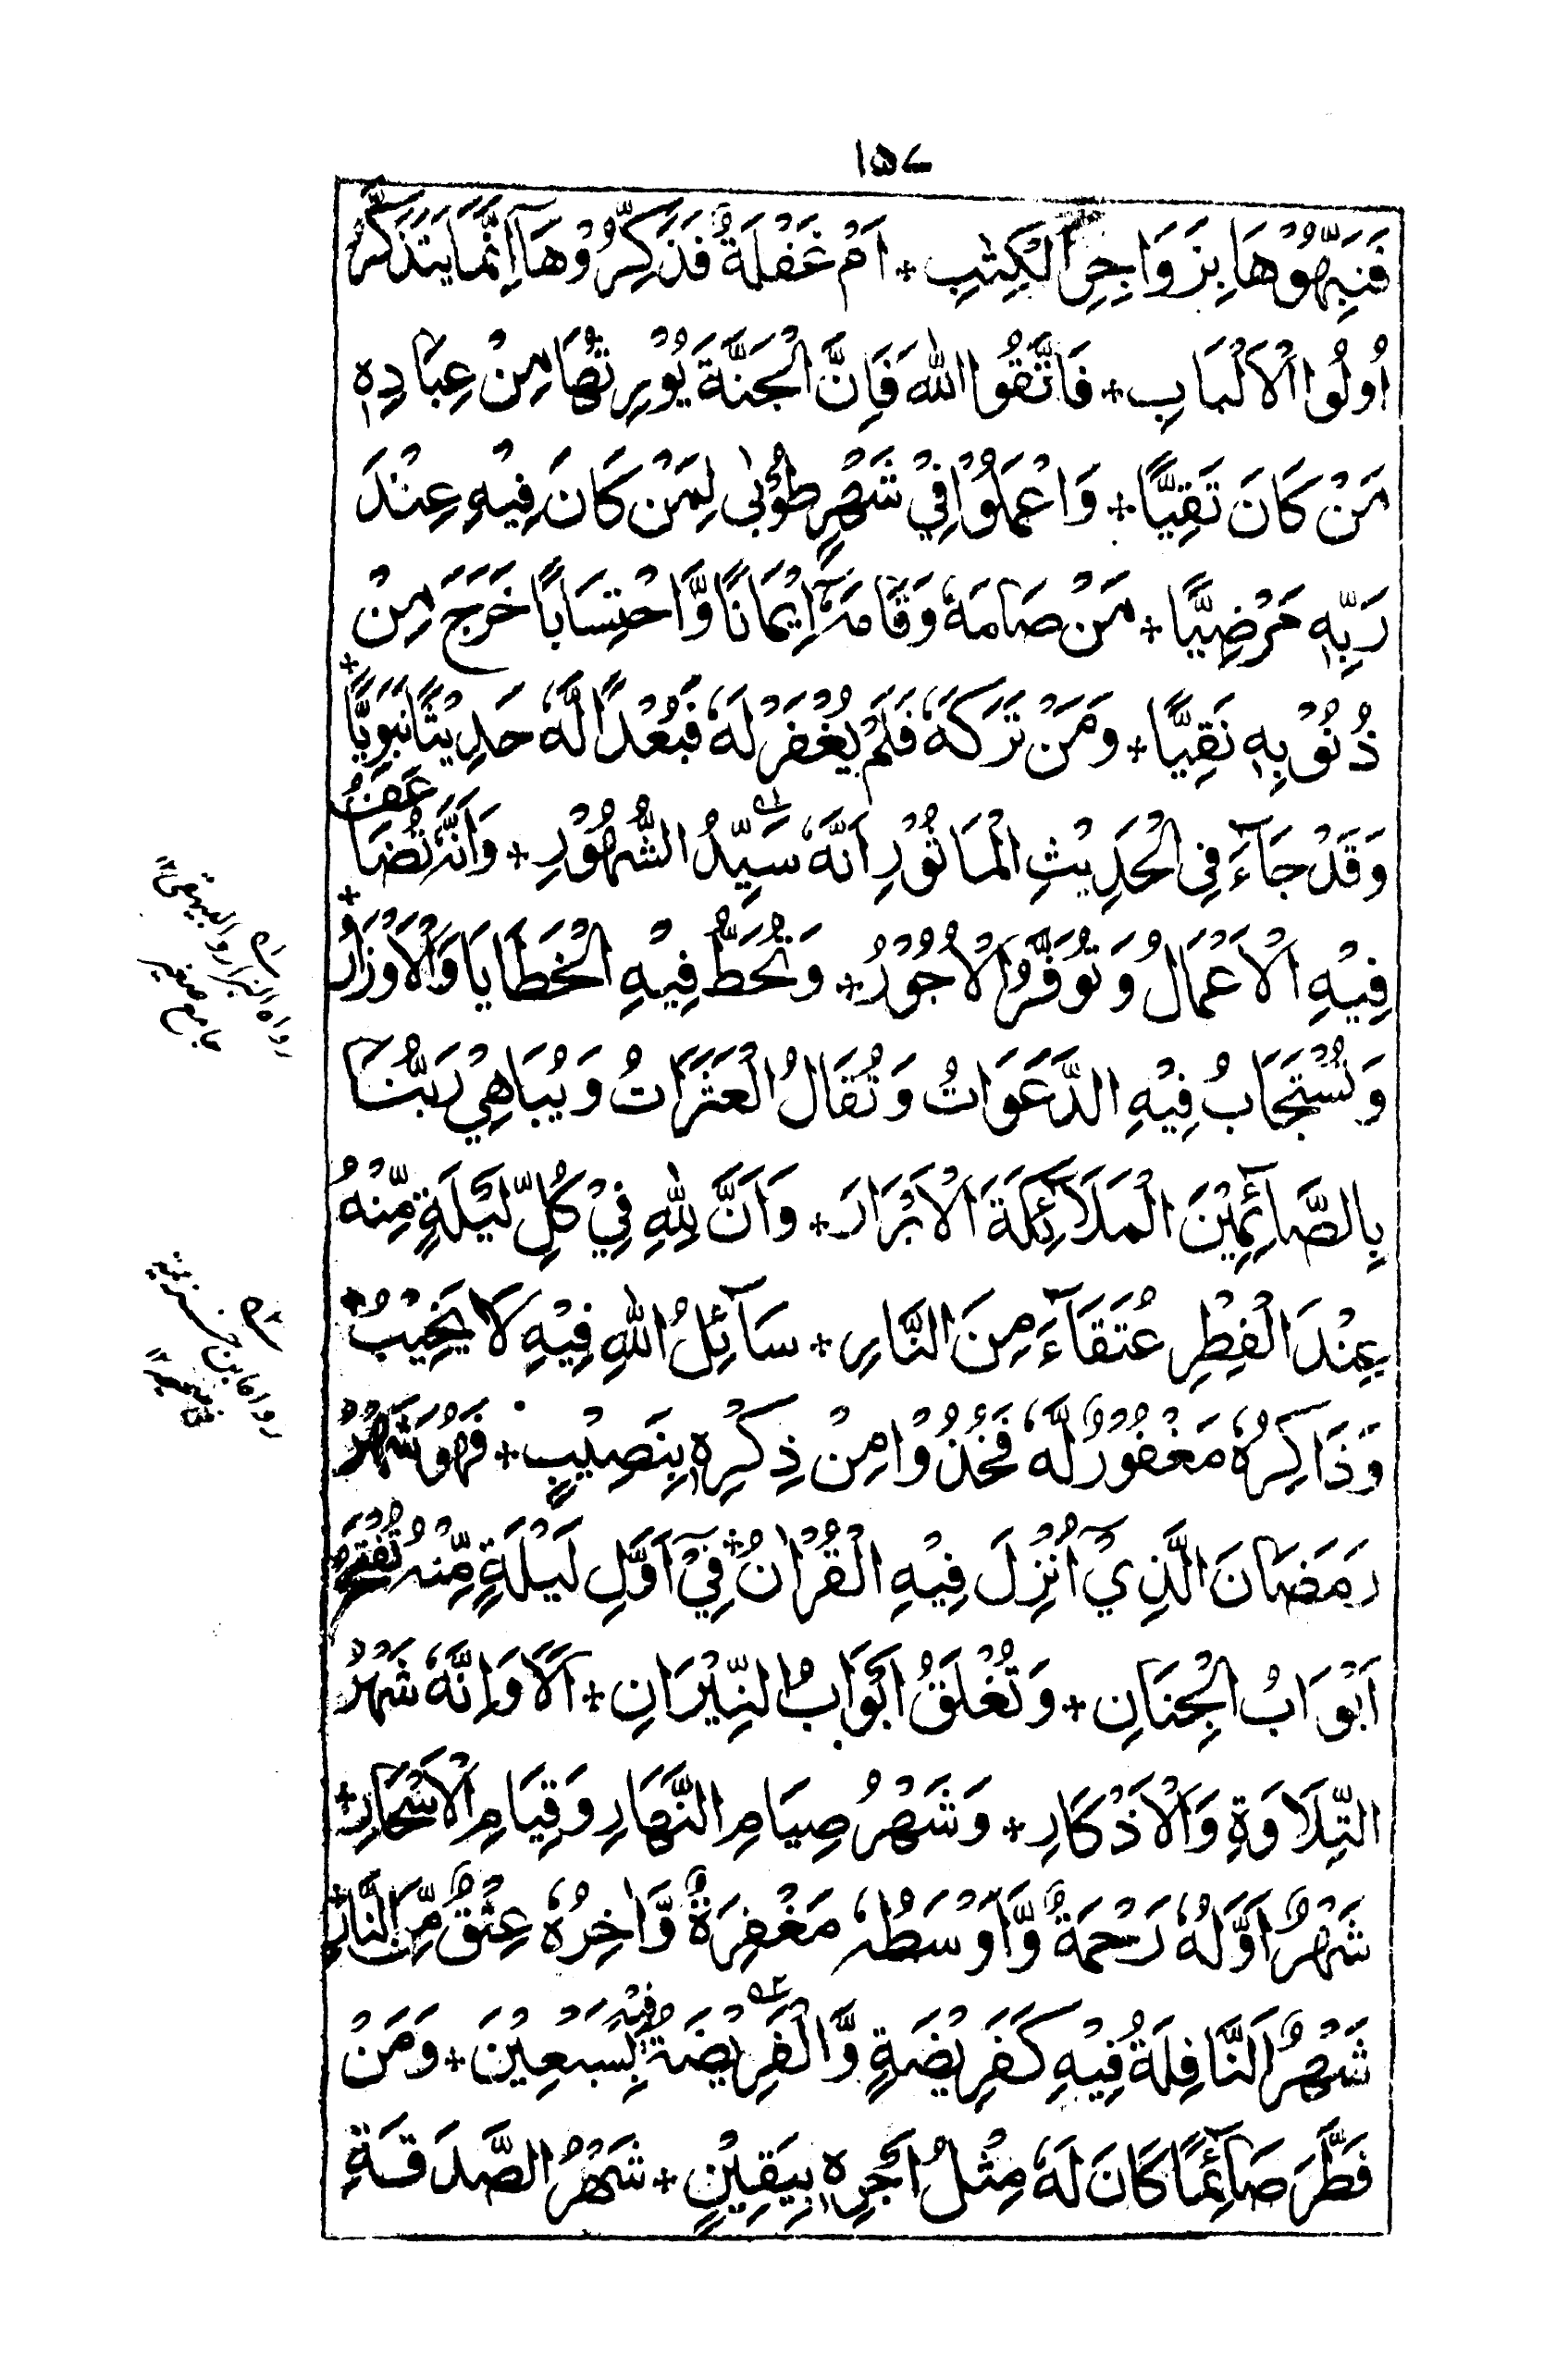 ١٥٧
فَنَبِّهُوْهَا بِزَوَاجِرِ الْكِتٰبِ + اَمْ غَفْلَةٌ فَذَكِّرُوْهَا اِنَّمَا يَتَذَكَّرُ
اُولُوا الْاَلْبَابِ + فَاتَّقُوا اللّٰهَ فَاِنَّ الْجَنَّةَ يُوْرِثُهَا مِنْ عِبَادِهٖ
مَنْ كَانَ تَقِيًّا + وَاعْمَلُوْا فِيْ شَهْرٍ طُوْبٰى لِمَنْ كَانَ فِيْهِ عِنْدَ
رَبِّهٖ مَرْضِيًّا + مَنْ صَامَهٗ وَقَامَهٗٓ اِيْمَانًا وَّاحْتِسَابًا خَرَجَ مِنْ
ذُنُوْبِهٖ نَقِيًّا + وَمَنْ تَرَكَهٗ فَلَمْ يُغْفَرْ لَهٗ فَبُعْدًا لَّهٗ حَدِيْثًا نَبَوِيًّا +
وَقَدْ جَآءَ فِي الْحَدِيْثِ الْمَاْثُوْرِ اَنَّهٗ سَيِّدُ الشُّهُوْرِ + وَاَنَّهٗ تُضَاعَفُ
فِيْهِ الْاَعْمَالُ وَتُوَفَّرُ الْاُجُوْرُ + وَتُحَطُّ فِيْهِ الْخَطَايَا وَالْاَوْزَارُ +
وَتُسْتَجَابُ فِيْهِ الدَّعَوَاتُ وَتُقَالُ الْعَثَرَاتُ وَيُبَاهِيْ رَبُّنَا
بِالصَّآئِمِيْنَ الْمَلَآئِكَةَ الْاَبْرَارَ + وَاَنَّ لِلّٰهِ فِيْ كُلِّ لَيْلَةٍ مِّنْهُ
عِنْدَ الْفِطْرِ عُتَقَآءَ مِنَ النَّارِ + سَآئِلُ اللّٰهِ فِيْهِ لَا يَخِيْبُ +
وَذَاكِرُهٗ مَغْفُوْرٌ لَّهٗ فَخُذُوْا مِنْ ذِكْرِهٖ بِنَصِيْبٍ + فَهُوَ شَهْرُ
رَمَضَانَ الَّذِيْٓ اُنْزِلَ فِيْهِ الْقُرْاٰنُ + فِيْٓ اَوَّلِ لَيْلَةٍ مِّنْهُ تُفْتَحُ
اَبْوَابُ الْجِنَانِ + وَتُغْلَقُ اَبْوَابُ النِّيْرَانِ + اَلَا وَاِنَّهٗ شَهْرُ
التِّلَاوَةِ وَالْاَذْكَارِ + وَشَهْرُ صِيَامِ النَّهَارِ وَقِيَامِ الْاَسْحَارِ +
شَهْرٌ اَوَّلُهٗ رَحْمَةٌ وَّاَوْسَطُهٗ مَغْفِرَةٌ وَّاٰخِرُهٗ عِتْقٌ مِّنَ النَّارِ +
شَهْرُ ۣالنَّافِلَةُ فِيْهِ كَفَرِيْضَةٍ وَّالْفَرِيْضَةُ فِيْهِ بِسَبْعِيْنَ + وَمَنْ
فَطَّرَ صَآئِمًا كَانَ لَهٗ مِثْلُ اَجْرِهٖ بِيَقِيْنٍ + شَهْرُ الصَّدَقَةِ
رواه البزار والبيهقي
جامع صغير
رواه ابن خزيمة